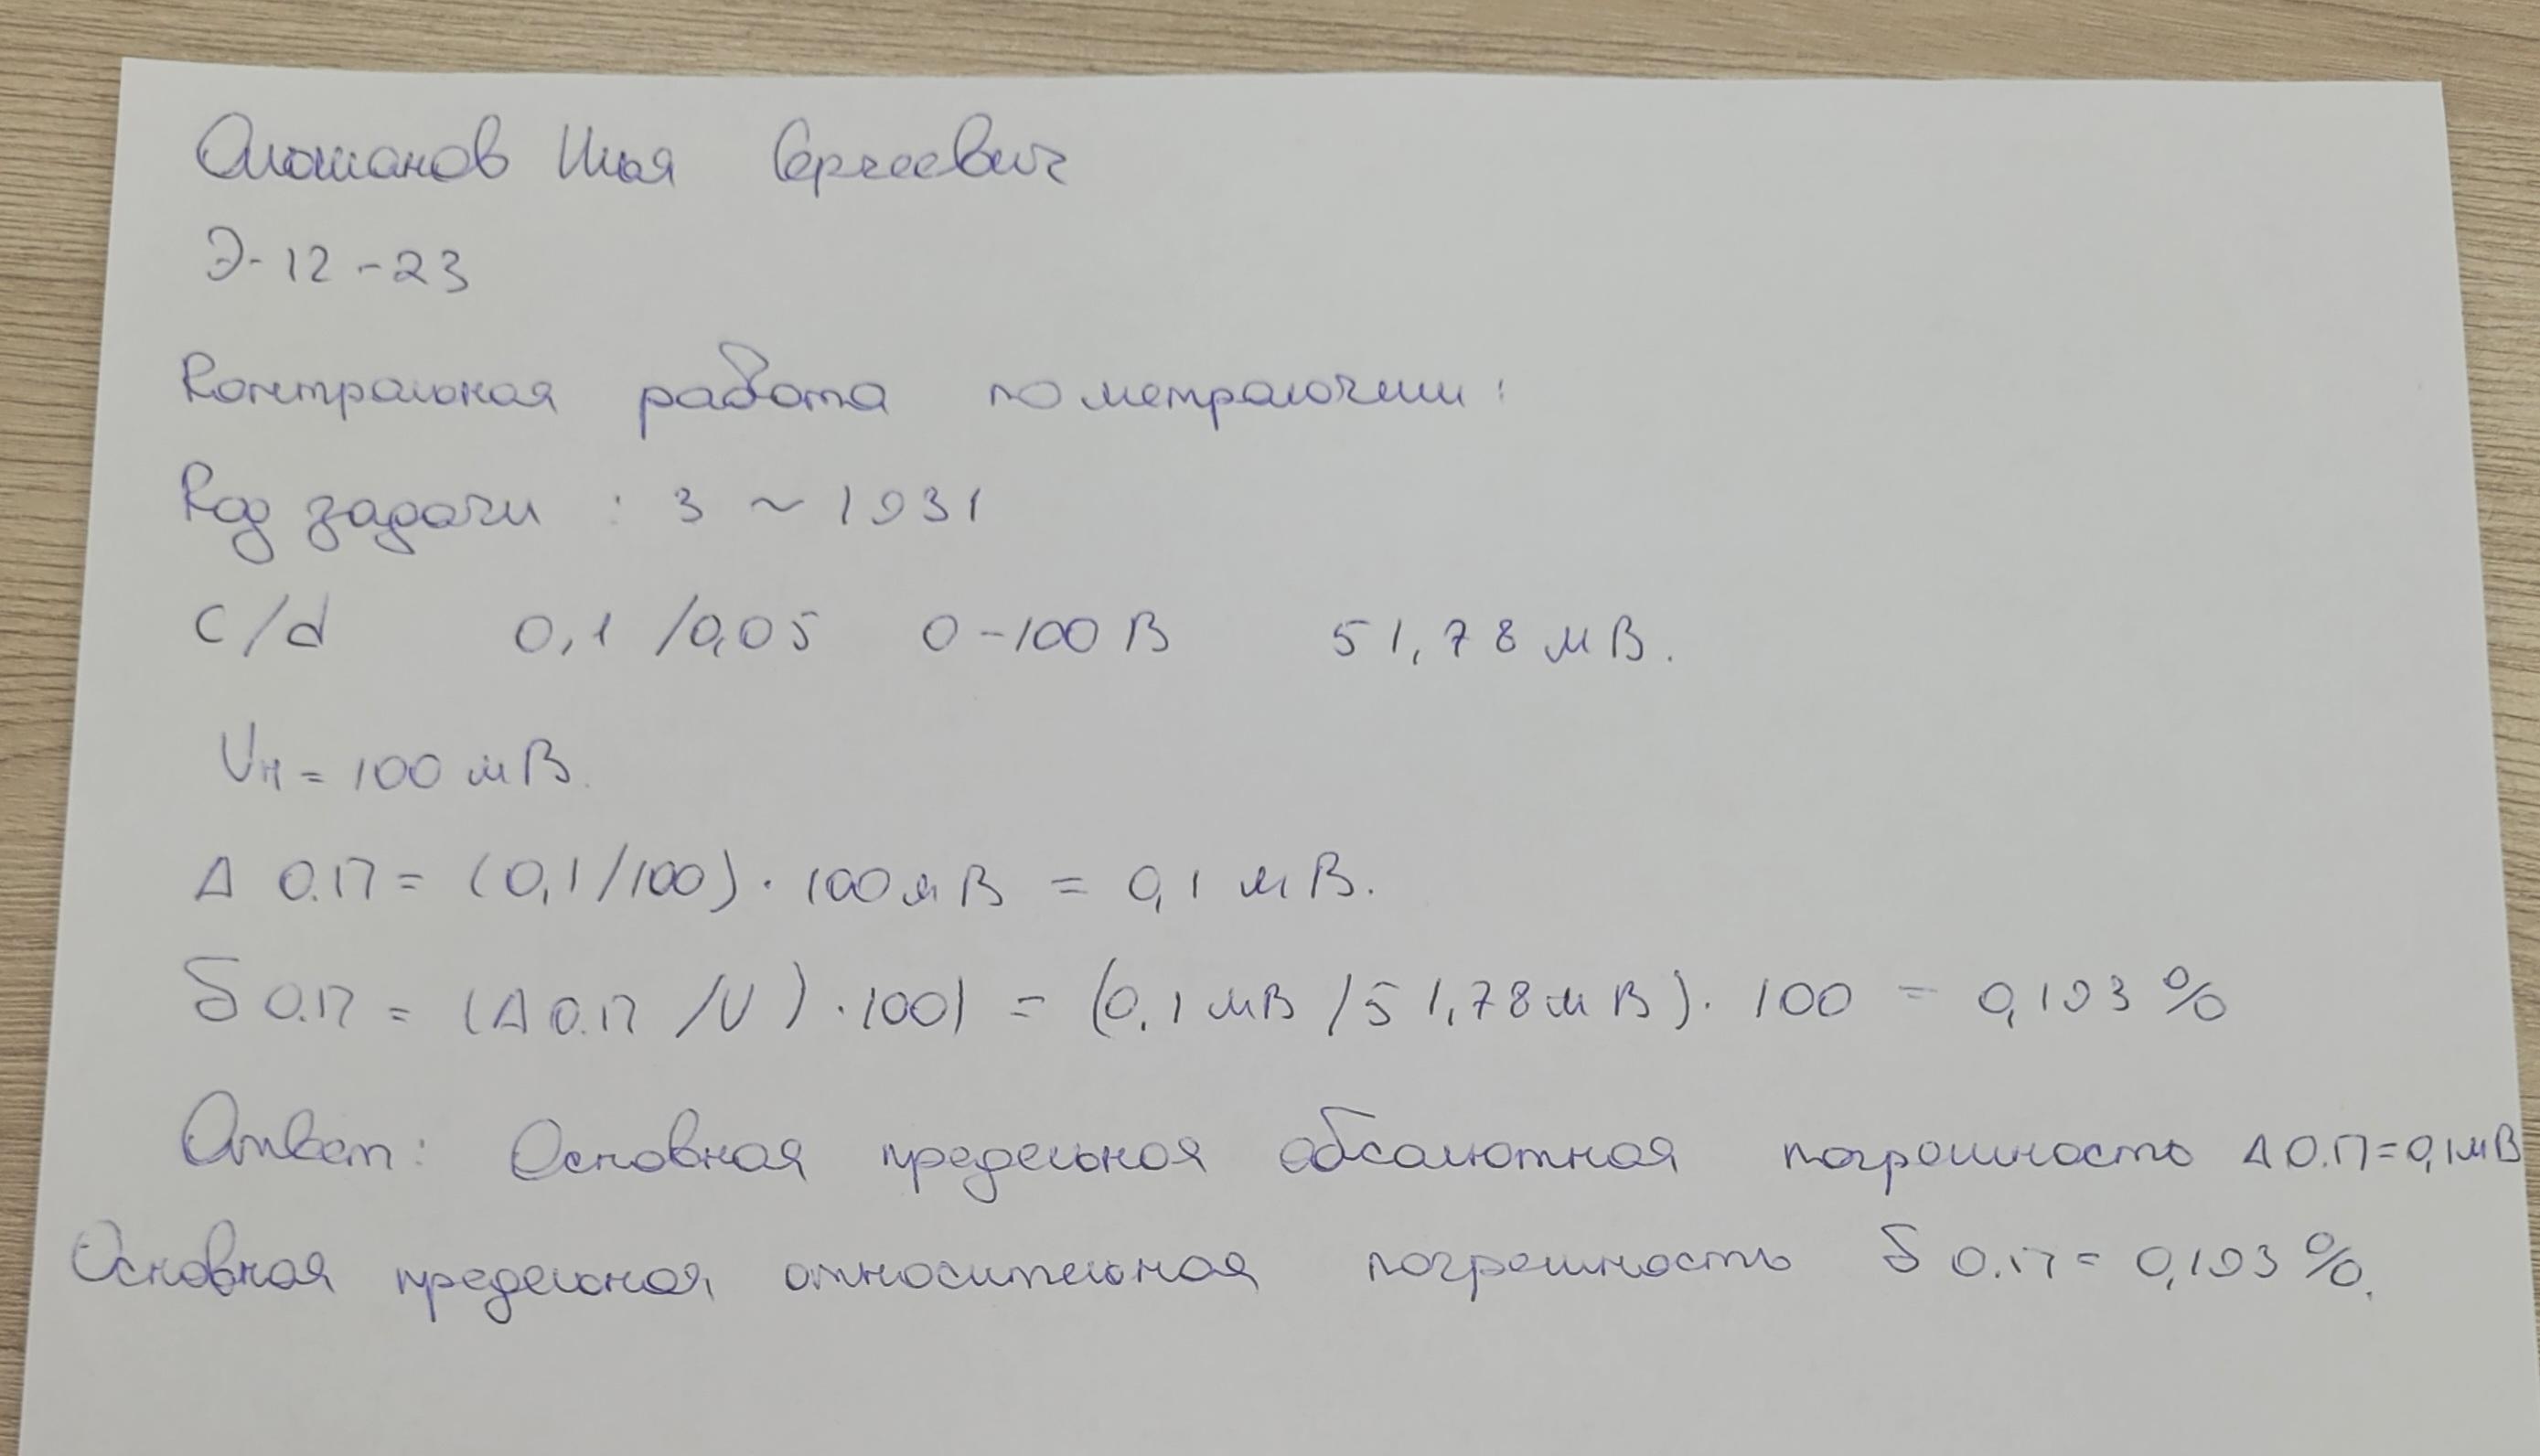 Олошанов Илья Сергеевич
Э-12-23
Контрольная работа по метрологии:
Код задачи : 3 ~ 1931
c/d 0,1/0,05 0-100 В 51,78 мВ.
Uн = 100 мВ.
Δ О.П = (0,1/100) · 100 мВ = 0,1 мВ.
δ О.П = (Δ О.П /U) · 100) = (0,1 мВ /51,78 мВ) · 100 = 0,193 %
Ответ: Основная предельная абсолютная погрешность Δ О.П = 0,1 мВ
Основная предельная относительная погрешность δ О.П = 0,193 %.